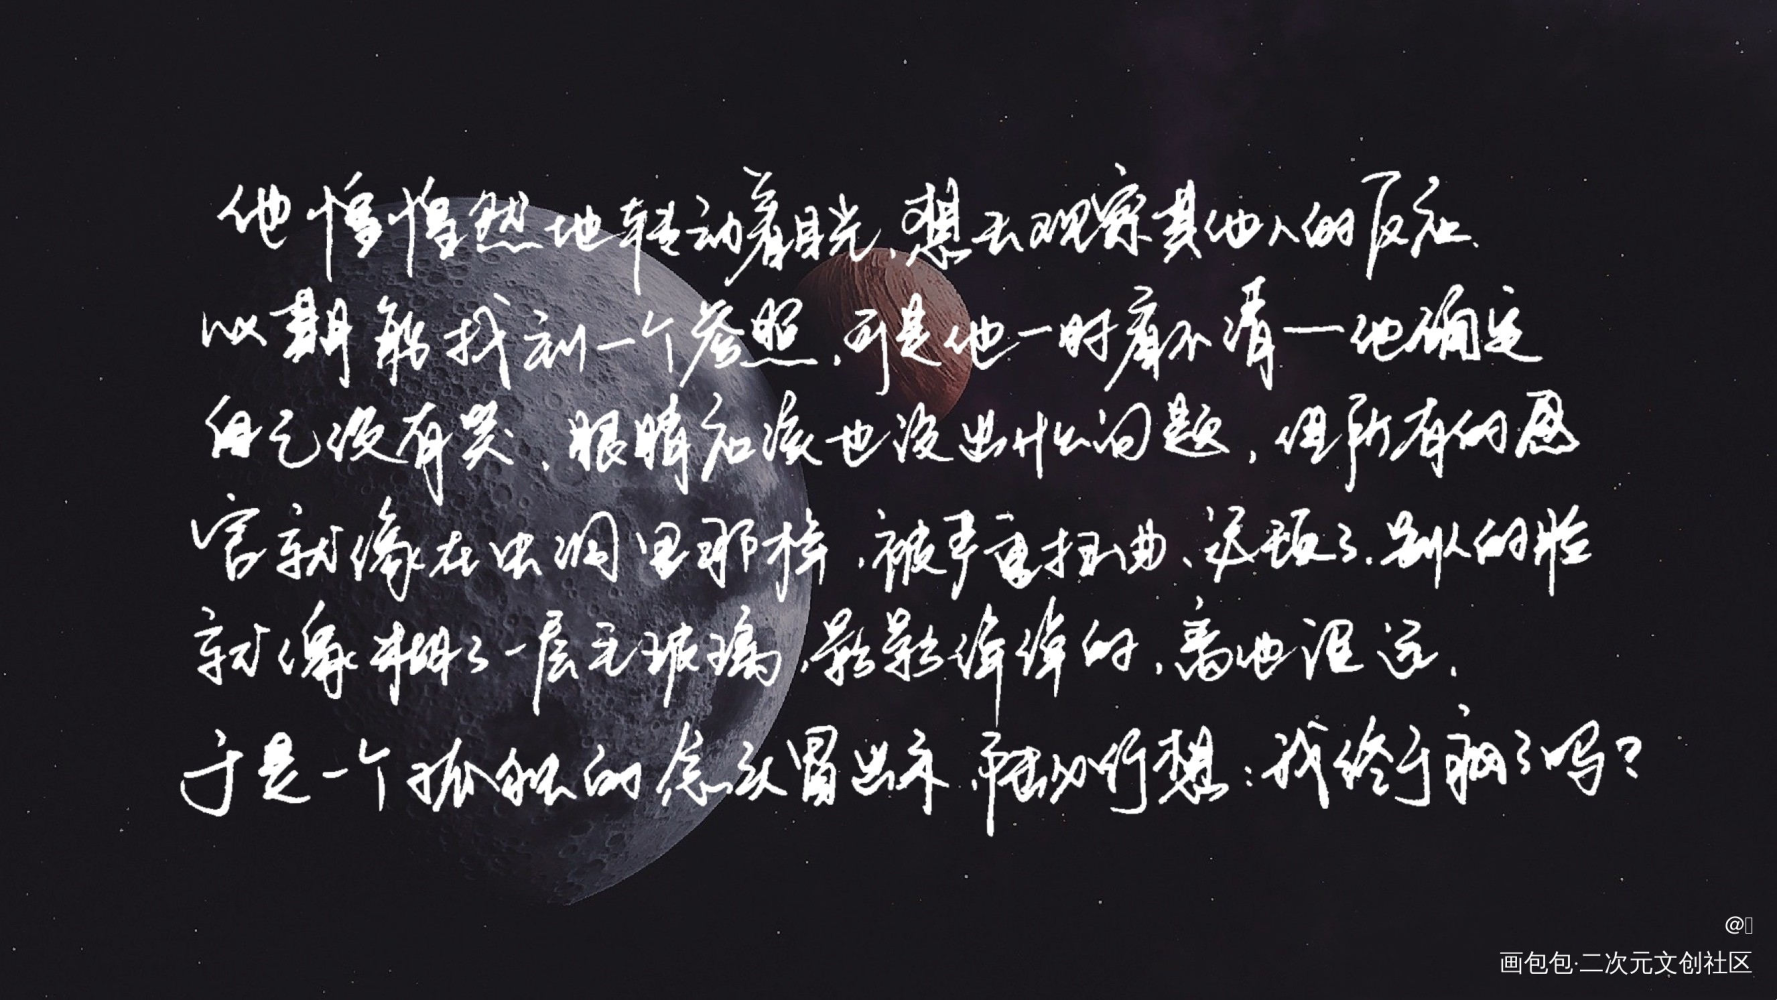 他惶惶然地转动着目光，想去观察其他人的反应，
以期能找到一个参照，可是他一时看不清一他确定
自己没有哭，眼睛应该也没出什么问题，但所有的感
官就像在虫洞里那样，被严重扭曲、迟顿了，别人的脸
就像糊了一层毛玻璃，影影绰绰的，离他很远。
于是一个孤独的念头冒出来，陆必行想：我终于疯了吗？
@
画包包·二次元文创社区